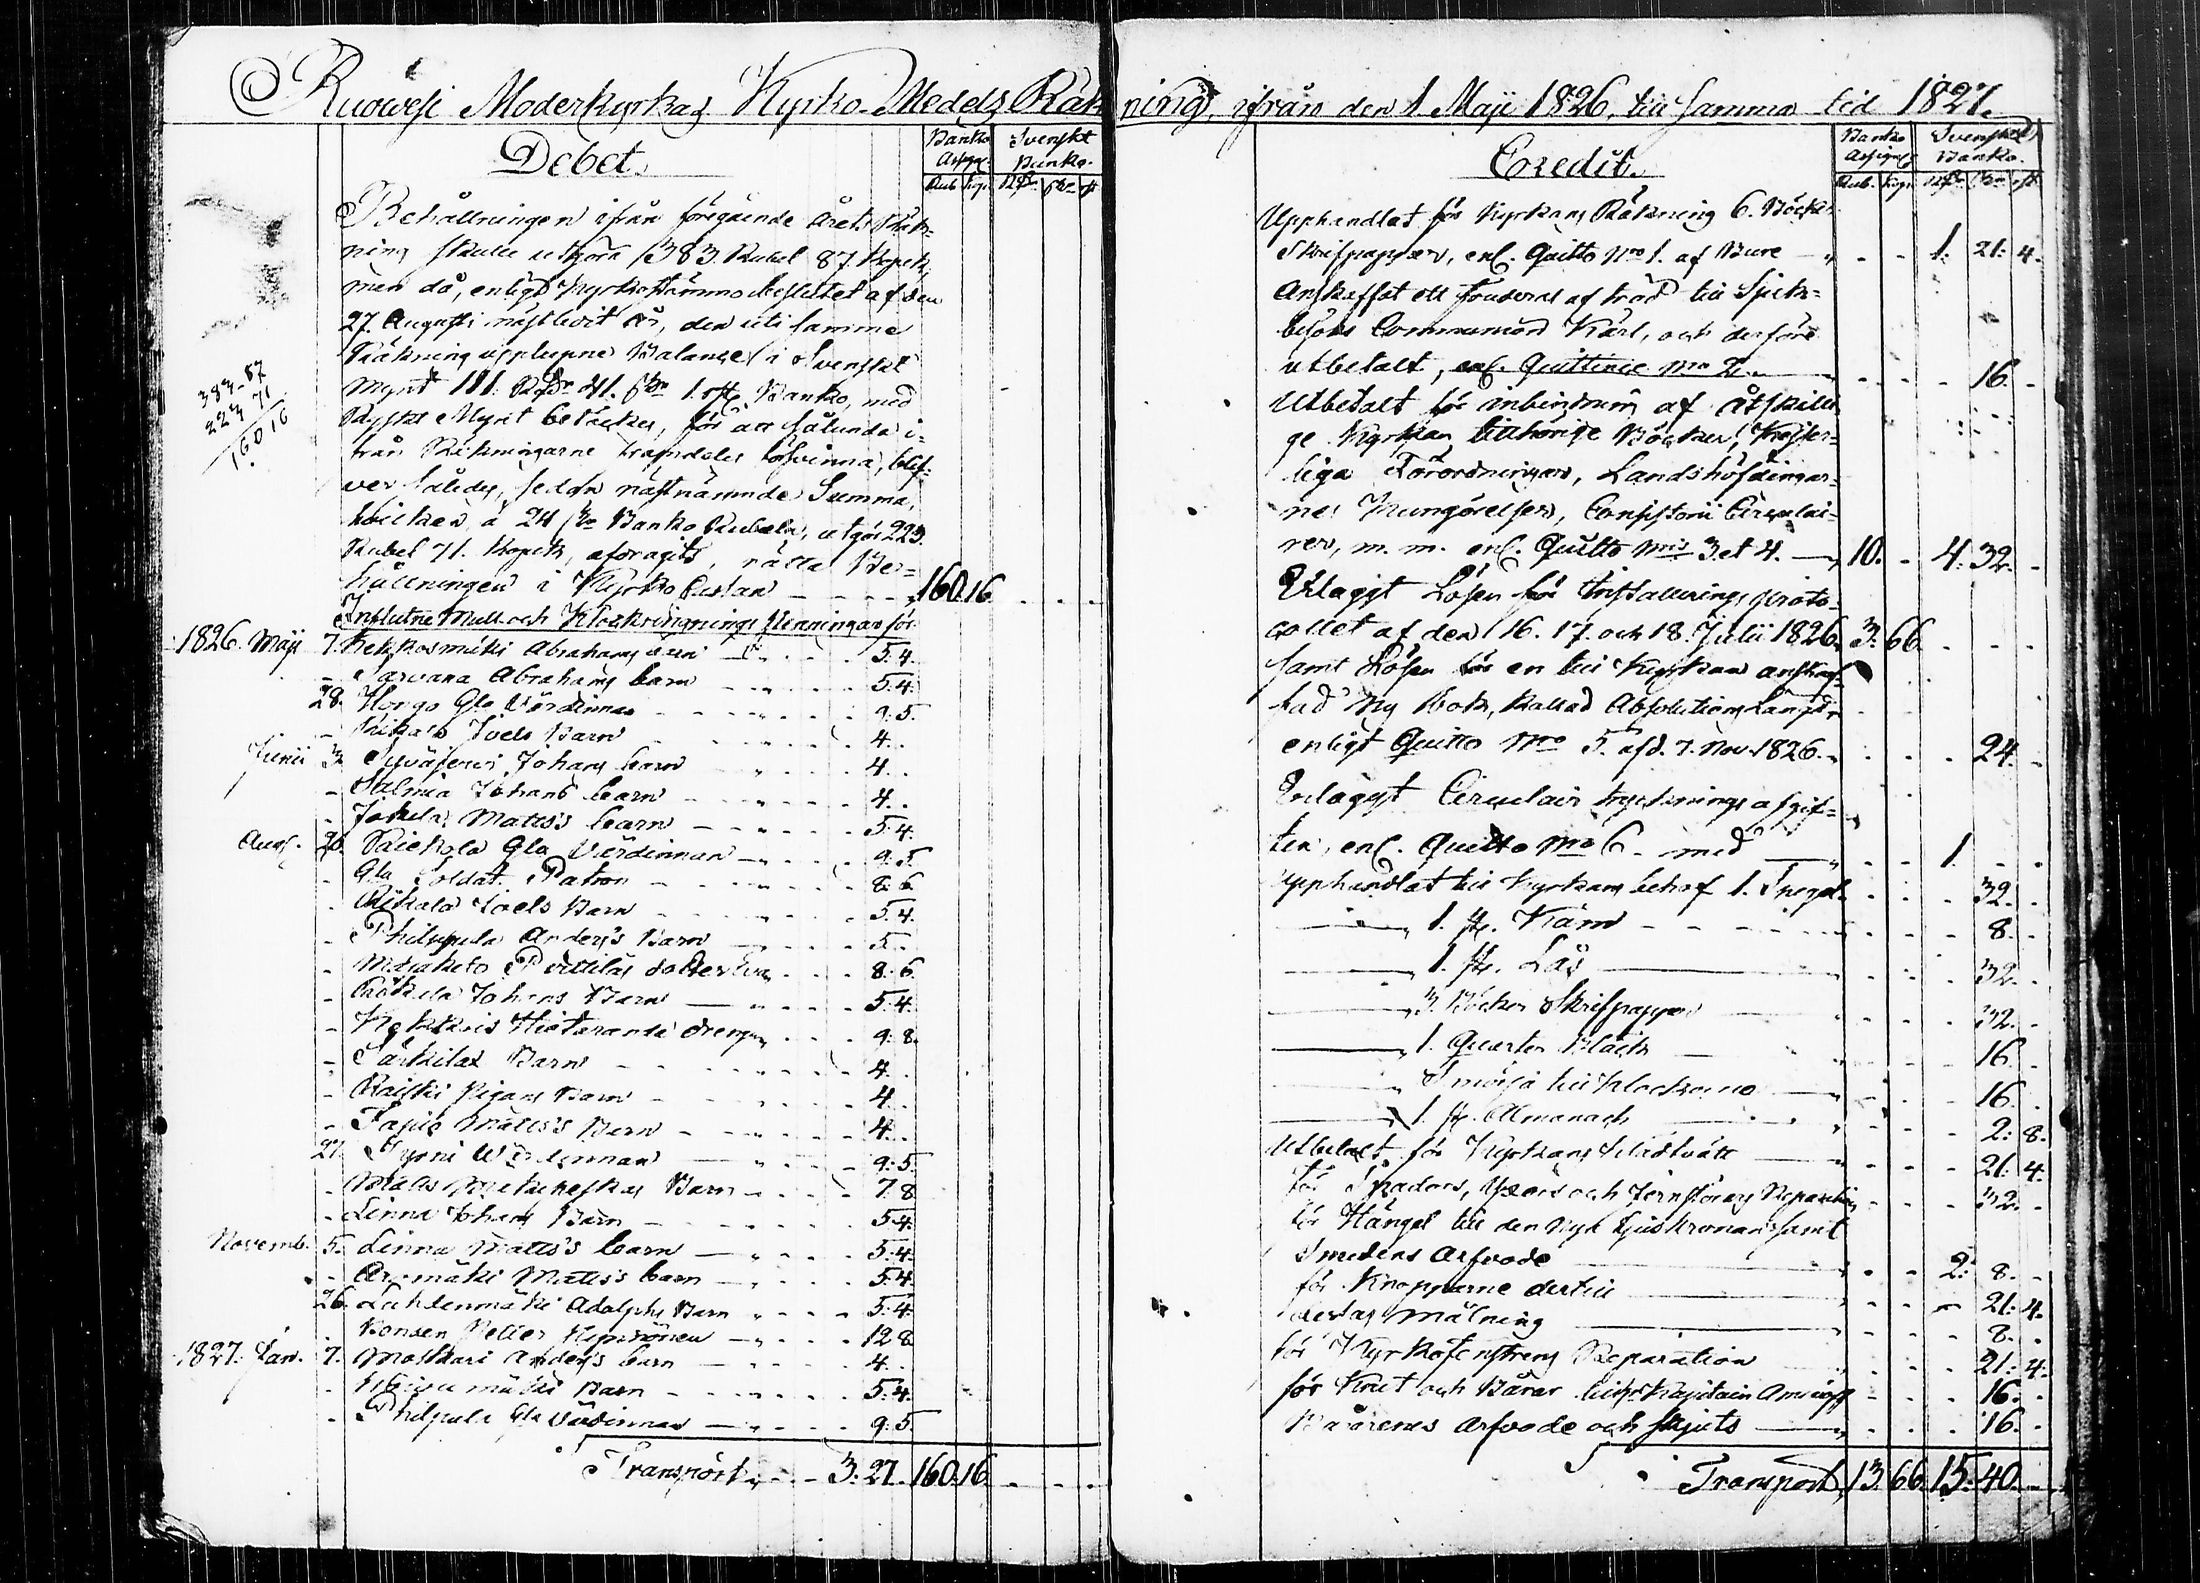 Ruowesi Moderkyrkas Kyrko-Medels Räkning, ifrån den 1. Maji 1826. till samma tid 1827.
Debet.
Banko Assign. Svenskt Banko.
Rub. Kop. Rdr. sk. rst.
Behållningen ifrån föregående årets Räk-
ning skulle utgöra 383. Rubel 87. Kopek,
men då, enligt Kyrkostämmo beslutet af den
27. Augusti nästledit år, den uti samma
Räkning upplupne Balance i Svenskt
Mynt 111. Rdr 41. sk. 1. rst. Banko, med
Ryskt Mynt betäckes, för att sålunda i-
från Räkningarne framdeles försvinna, blif-
ver således, sedan nästnämnde Summa,
hvilken, à 24 sk. Banko Rubeln, utgör 223.
Rubel 71. Kopek, afdragits, rätta Be-
hållningen i Kyrko Cassan 160. 16.
383-87
223 71
160 16
Influtne Mull och Klockringnings Penningar för
1826. Maji 7. Kekkosmäki Abrahams barn 5. 4.
Sarvana Abrahams barn 5. 4.
28. Hongo Gla Värdinnan 9. 5.
Joels Barn 4.
Junii 3. Johans barn 4.
Salmia Johans barn 4.
Jokela Matts's barn 5. 4.
Aug. 20. Gla Värdinnan 9. 5.
Gla Soldat Patron 8. 6.
Joels Barn 5. 4.
Philppula Anders's Barn 5.
Pettiläs dotter Eva 8. 6.
Johans Barn 5. 4.
drengen 9. 8.
Särkilax Barn 4.
Raiski Pigans Barn 4.
Tapio Matts's Barn 4.
27. Värdinnan 9. 5.
Barn 7. 8.
Linna Johans Barn 5. 4.
Novemb. 5. Linna Matts's barn 5. 4.
Matts's barn 5. 4.
26. Lahdenmäki Adolphs Barn 5. 4.
Bonden Petter 12. 8.
1827. Jan. 7. Anders's barn 4.
mäki Barn 5. 4.
Philpula Gla Värdinnan 9. 5.
Transport 3. 27. 160. 16.
Credit.
Banko Assign. Svenskt Banko.
Rub. Kop. Rdr. sk. rst.
Upphandlat för Kyrkans Räkning 6. Böcker
Skrifpapper, enl. Quitto No 1. af Bure 1. 21. 4.
Anskaffat ett Fouderal af träd till Sjuk-
besöks Communion Kärl, och derföre
utbetalt, enl. Quittence No 2. 16.
Utbetalt för inbindning af åtskilli-
ge Kyrkan tillhörige Böcker, Kejser-
liga Förordningar, Landshöfdingar-
nes Kungörelser, Consistorii Circulai-
rer, m. m. enl. Quitto No's 3. et 4. 10. 4. 32.
Erlagt Lösen för Installerings proto-
collet af den 16. 17. och 18. Julii 1826. 3. 66.
samt Lösen för en till Kyrkan anskaf-
fad Ny Bok, kallad Absolutions Längd,
enligt Quitto No 5. af d. 7. Nov. 1826. 24.
Erlagt Circulair trycknings afgif-
ten, enl. Quitto No 6. med 1.
Upphandlat till Kyrkans behof 1. Spegel 32.
1. st. Kam 8.
1. st. Lås 32.
3. Böcker Skrifpapper 32.
1. Quarter Bläck 16.
Smörja till klockorne 16.
1. st. Almanach 2. 8.
Utbetalt för Kyrkans klädtvätt 21. 4.
för Spadars, Yxors och Jernstörars Reparation 32.
för Hängel till den Nya Ljuskronan samt
Smedens Arfvode 2. 8.
för Knopparne dertill 21. 4.
deras Målning 8.
för Kyrkofenstrens Reparation 21. 4.
för Krut och Bårar till Kapitain 16.
Arfvode och skjuts 16.
Transport 13. 66. 15. 40.